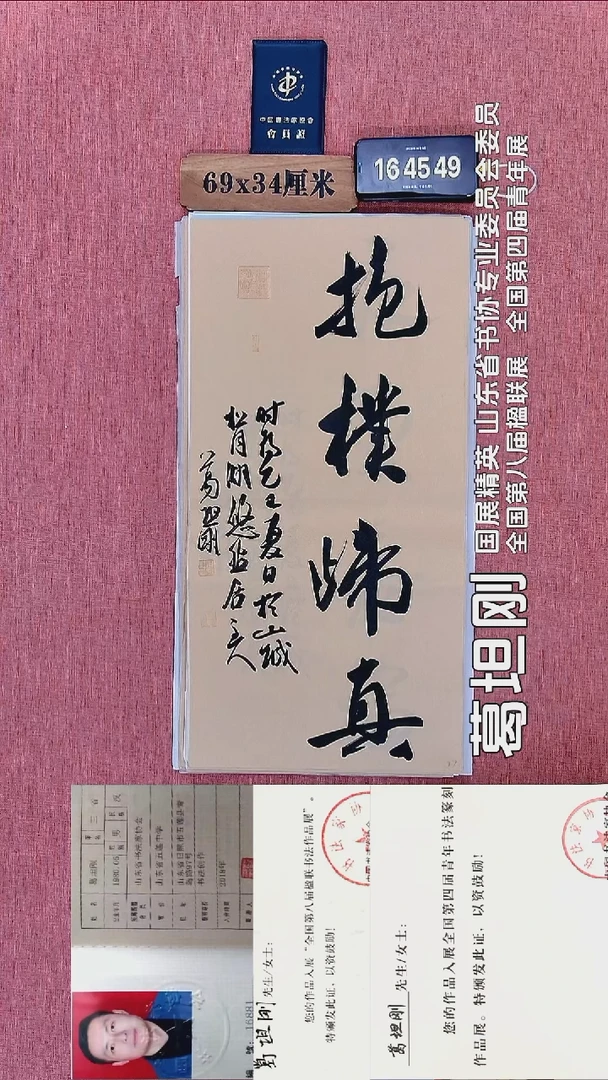 中国书法家协会
会员证
69x34厘米
16 45 49
抱樸歸真
时为乙巳夏日於山城
松月湖悠然居主人
葛坦刚
葛坦刚
国展精英 山东省书协专业委员会委员
全国第八届楹联展 全国第四届青年展
山东省书法家协会
山东省五莲中学
书法创作
2018年
16881
葛坦刚 先生/女士：
您的作品入展“全国第八届楹联书法作品展”。
特颁发此证，以资鼓励！
葛坦刚 先生/女士：
您的作品入展全国第四届青年书法篆刻
作品展。特颁发此证，以资鼓励！